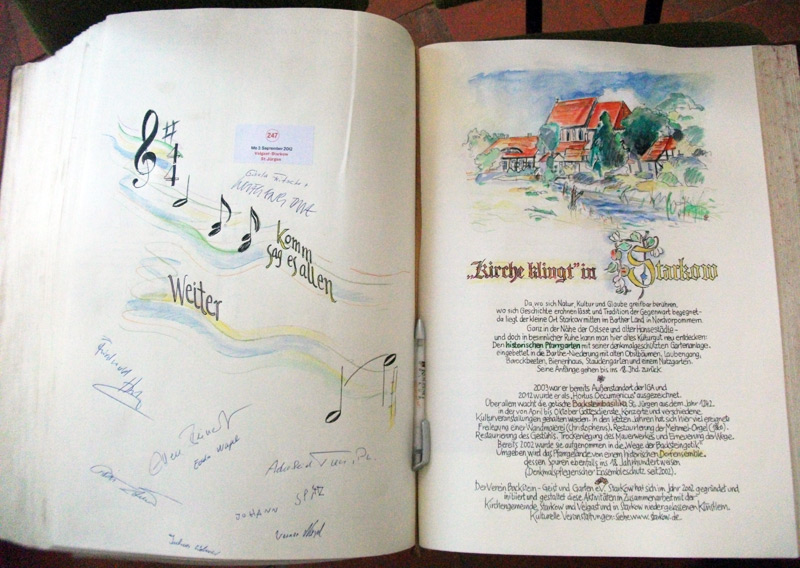 247
Mo 3 September 2012
Velgast-Starkow
St. Jürgen
Komm
sag es allen
Weiter
JOHANN SPATZ
„Kirche klingt" in Starkow
Da, wo sich Natur, Kultur und Glaube greifbar berühren,
wo sich Geschichte erahnen lässt und Tradition der Gegenwart begegnet-
da liegt der kleine Ort Starkow mitten im Barther Land in Nordvorpommern.
Ganz in der Nähe der Ostsee und alter Hansestädte-
und doch in besinnlicher Ruhe kann man hier altes Kulturgut neu entdecken:
Den historischen Pfarrgarten mit seiner denkmalgeschützten Gartenanlage.
eingebettet in die Barthe-Niederung mit alten Obstbäumen, Laubengang,
Barockbeeten, Bienenhaus, Staudengarten und einem Nutzgarten.
Seine Anfänge gehen bis ins 18. Jhd. zurück.
2003 war er bereits Außenstandort der IGA und
2012 wurde er als „Hortus Oecumenicus" ausgezeichnet.
Über allem wacht die gotische Backsteinbasilika St. Jürgen aus dem Jahr
in der von April bis Oktober Gottesdienste, Konzerte und verschiedene
Kulturveranstaltungen gehalten werden. In den letzten Jahren hat sich hier viel ereignet:
Freilegung einer Wandmalerei (Christopherus), Restaurierung der Mehmel-Orgel
Restaurierung des Gestühls, Trockenlegung des Mauerwerkes und Erneuerung der Wege.
Bereits 2002 wurde sie aufgenommen in die „Wege der Backsteingotik"
Umgeben wird das Pfarrgelände von einem historischen Dorfensemble,
dessen Spuren ebenfalls ins 18. Jahrhundert weisen
(Denkmalpflegerischer Ensembleschutz seit 2002).
Der Verein Backstein - Geist und Garten e.V. Starkow hat sich im Jahr 2002 gegründet und
initiiert und gestaltet diese Aktivitäten in Zusammenarbeit mit der
Kirchengemeinde Starkow und Velgast und in Starkow niedergelassenen Künstlern.
Kulturelle Veranstaltungen: siehe: www.starkow.de